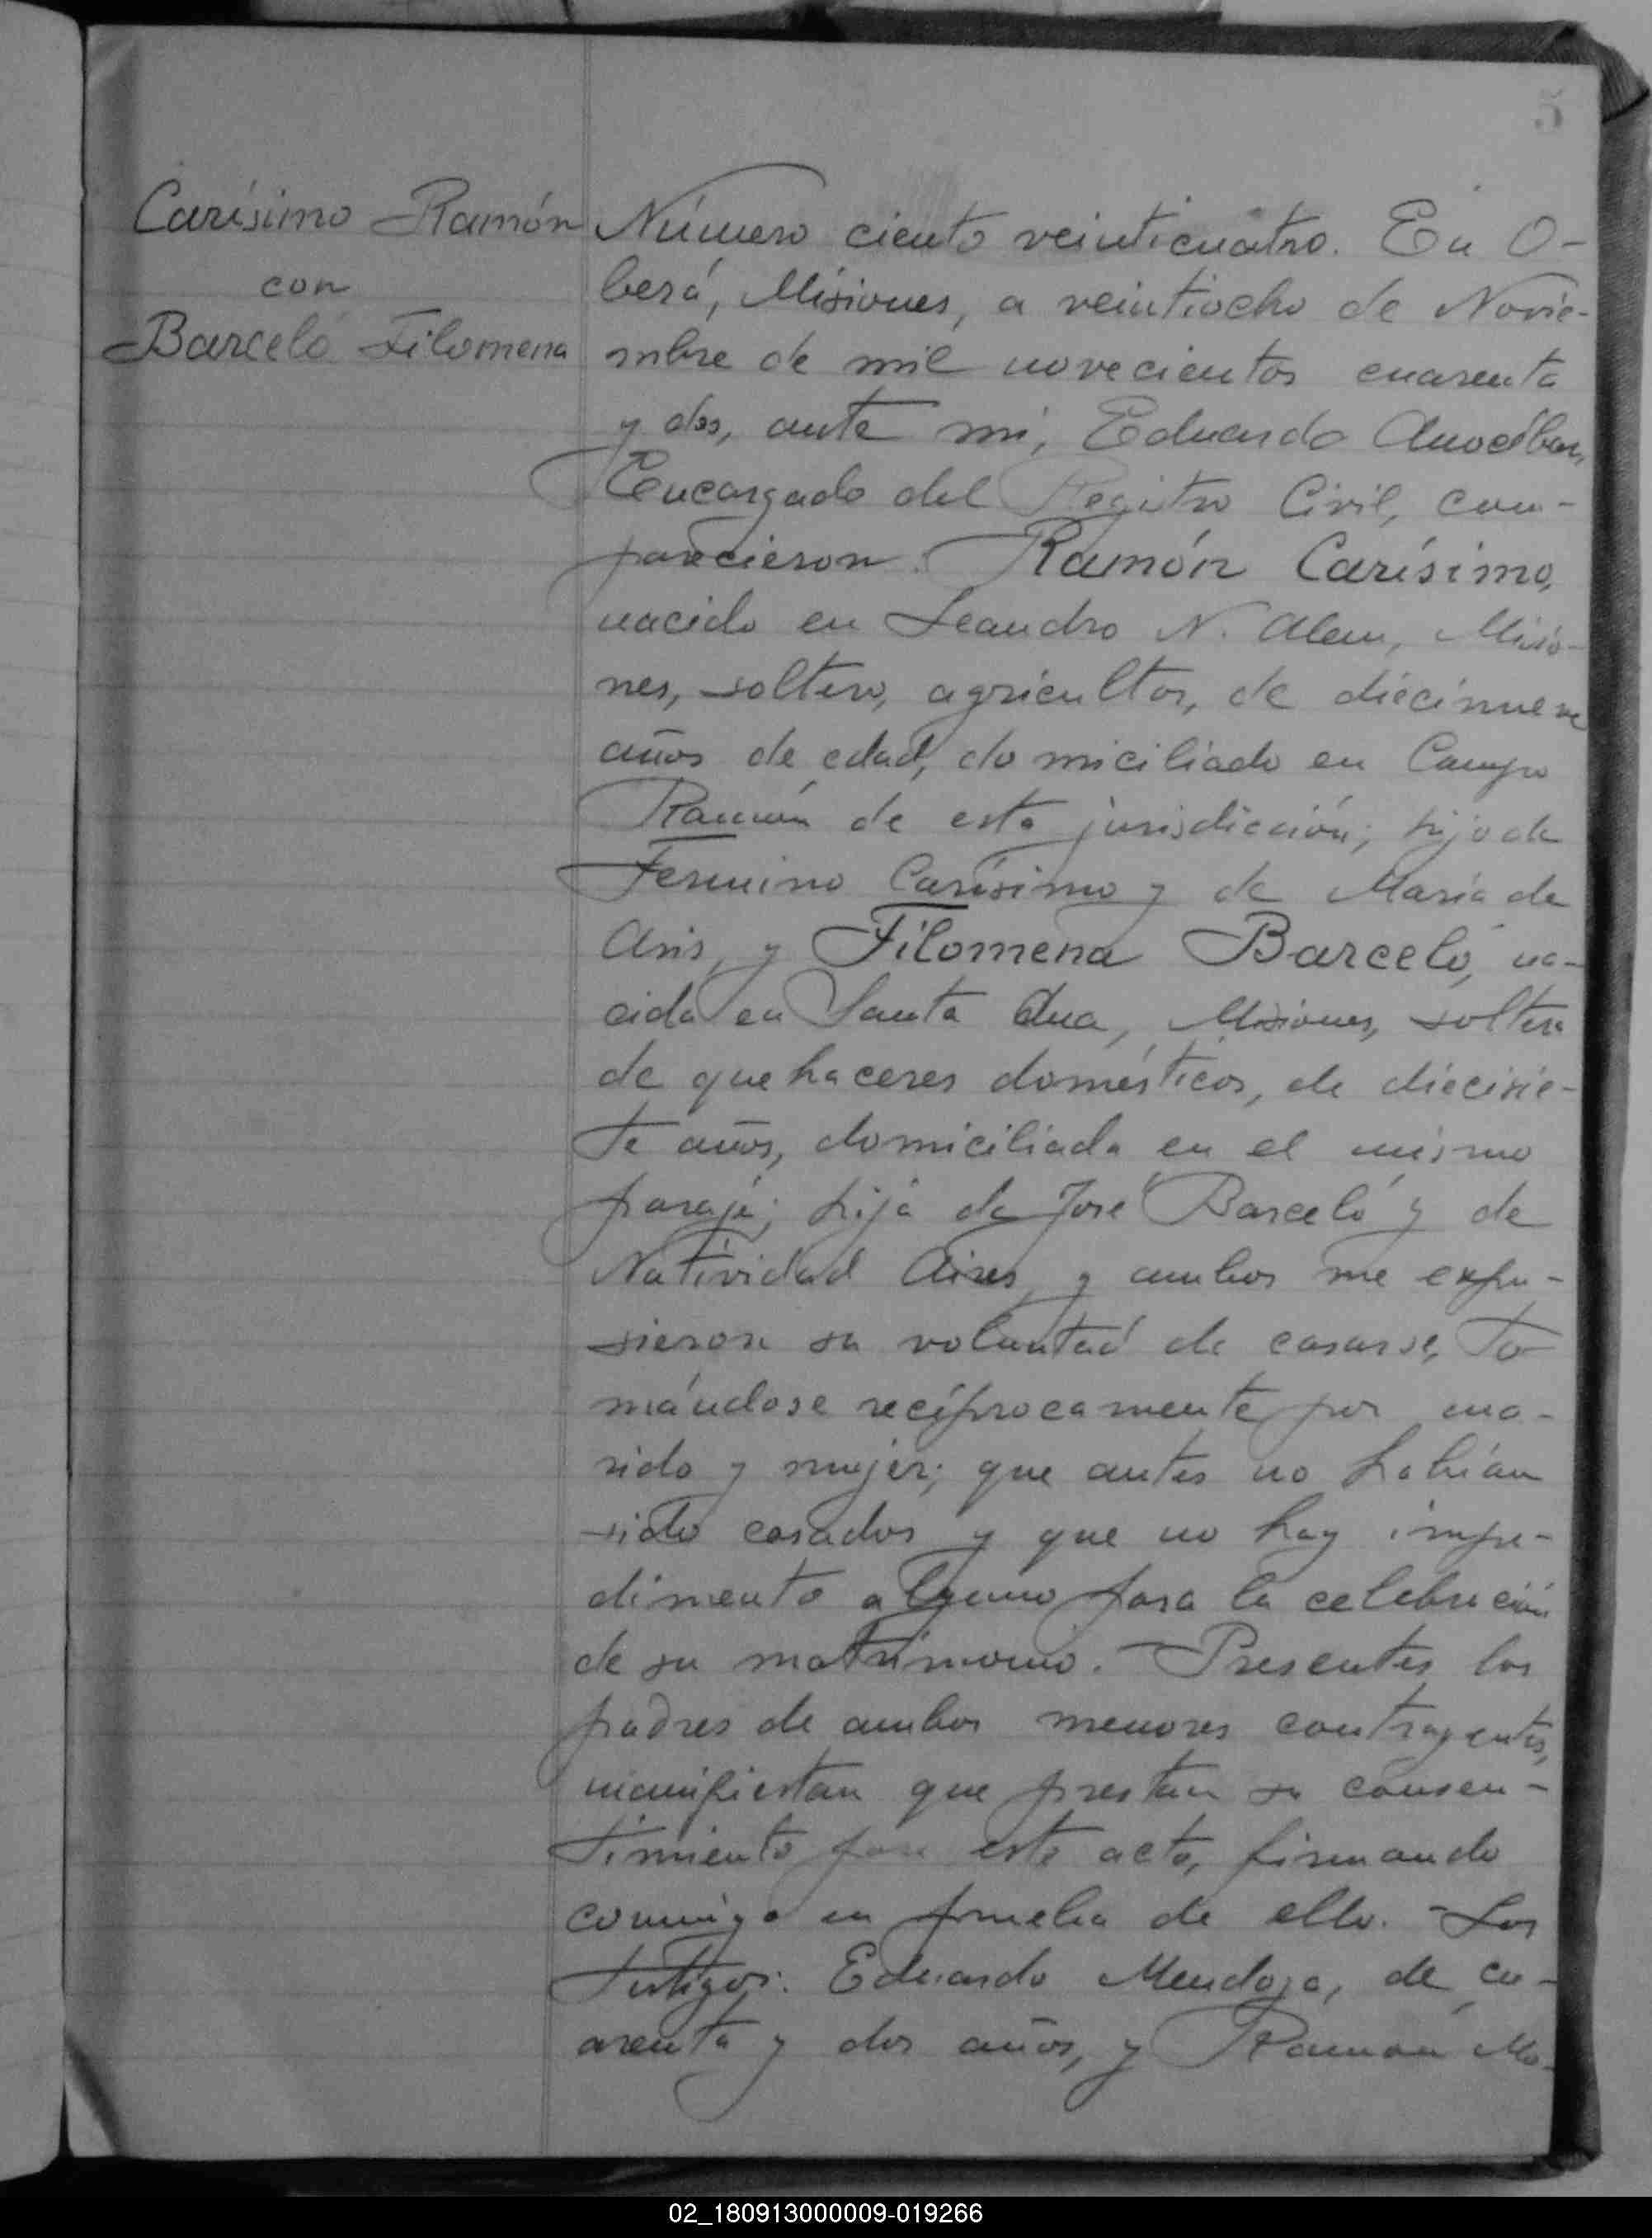 5
Carísimo Ramón
con
Barceló Filomena
Número ciento veinticuatro. En O-
berá, Misiones, a veintiocho de Novie-
mbre de mil novecientos cuarenta
y dos, ante mi, Eduardo
Encargado del Registro Civil, com-
parecieron Ramón Carísimo,
nacido en Leandro N. Alem, Misio-
nes, soltero, agricultor, de diecinueve
años de edad, domiciliado en Campo
Ramón de esta jurisdicción; hijo de
Fermino Carísimo y de María de
Asis, y Filomena Barceló, na-
cida en Santa Ana, Misiones, soltera
de quehaceres domésticos, de diecisie-
te años, domiciliada en el mismo
paraje; hija de José Barceló y de
Natividad Aires, y ambos me expu-
sieron su voluntad de casarse, to-
mándose recíprocamente por ma-
rido y mujer; que antes no habían
sido casados y que no hay impe-
dimento alguno para la celebración
de su matrimonio. Presentes los
padres de ambos menores contrayentes,
manifiestan que prestan su consen-
timiento para este acto, firmando
conmigo en prueba de ello. Los
testigos: Eduardo Mendoza, de cu-
arenta y dos años, y Ramón Mo-
02_180913000009-019266